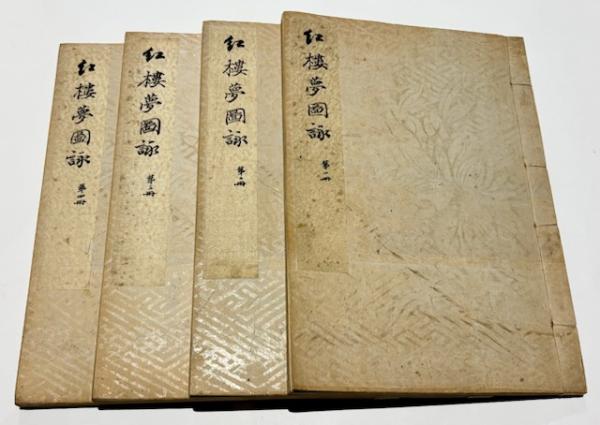 紅樓夢圖詠
第一冊
紅樓夢圖詠
第二冊
紅樓夢圖詠
第三冊
紅樓夢圖詠
第四冊